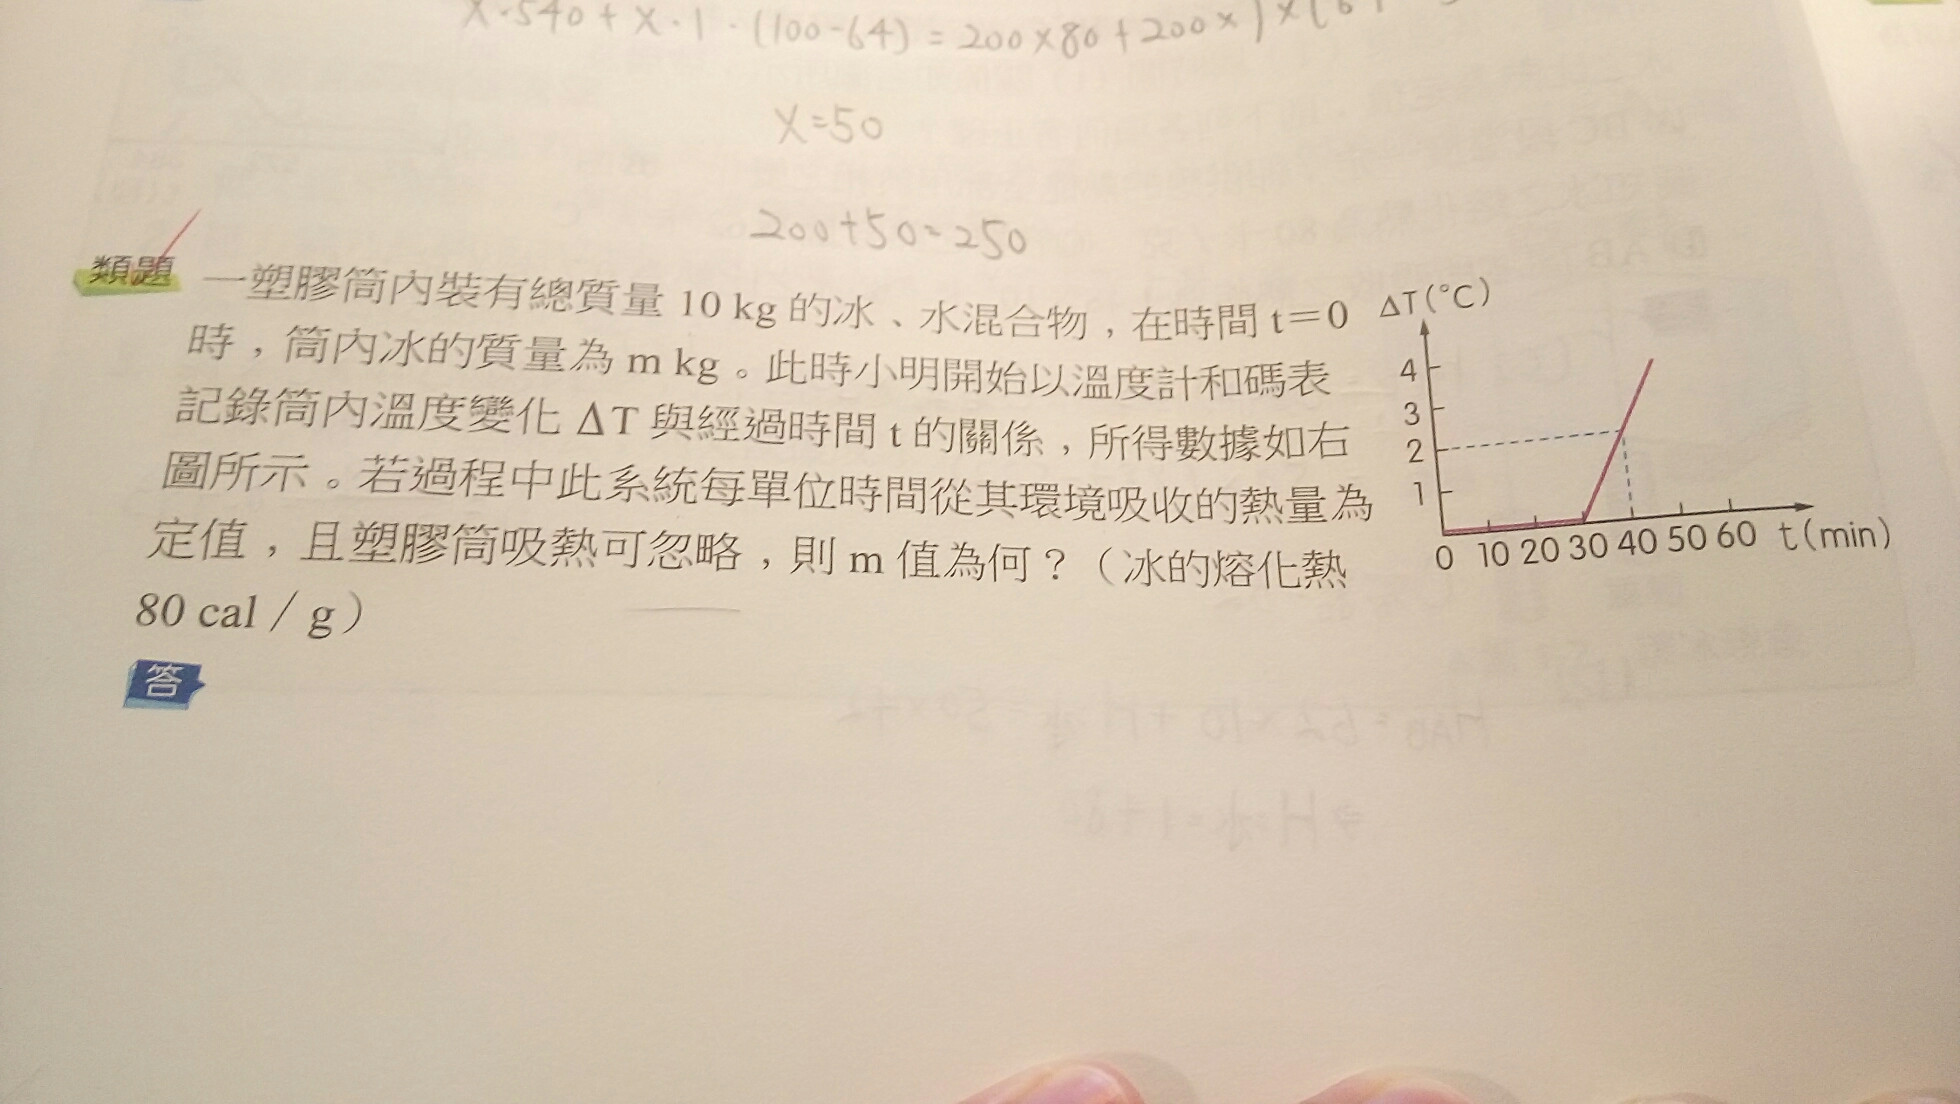 X·540+X·1·(100-64)=200×80+200×)×(6
X=50
200+50=250
類題 一塑膠筒內裝有總質量 10 kg 的冰、水混合物，在時間 t＝0
時，筒內冰的質量為 m kg。此時小明開始以溫度計和碼表
記錄筒內溫度變化 ΔT 與經過時間 t 的關係，所得數據如右
圖所示。若過程中此系統每單位時間從其環境吸收的熱量為
定值，且塑膠筒吸熱可忽略，則 m 值為何？（冰的熔化熱
80 cal／g）
ΔT(°C)
4
3
2
1
0 10 20 30 40 50 60 t(min)
答